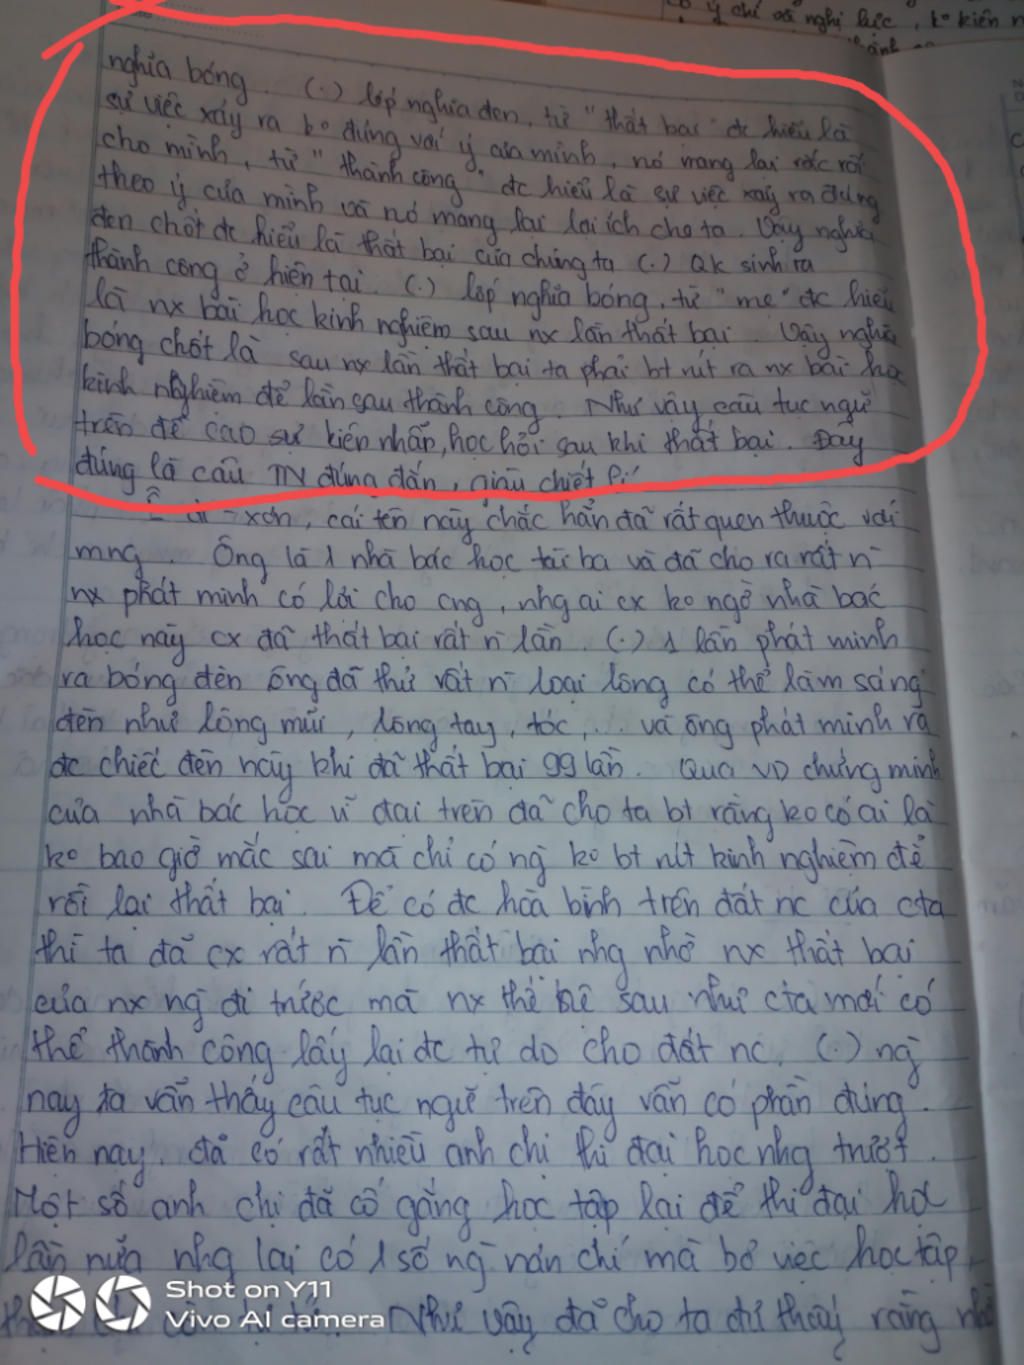 có ý chí và nghị lực, ko kiên n
nghĩa bóng. (.) lớp nghĩa đen, từ "thất bại" đc hiểu là
sự việc xảy ra ko đúng với ý của mình, nó mang lại rắc rối
cho mình, từ "thành công" đc hiểu là sự việc xảy ra đúng
theo ý của mình và nó mang lại lợi ích cho ta. Vậy nghĩa
đen chốt đc hiểu là thất bại của chúng ta (.) QK sinh ra
thành công ở hiện tại. (.) lớp nghĩa bóng, từ "mẹ" đc hiểu
là nx bài học kinh nghiệm sau nx lần thất bại. Vậy nghĩa
bóng chốt là sau nx lần thất bại ta phải bt rút ra nx bài học
kinh nghiệm để lần sau thành công. Như vậy câu tục ngữ
trên đề cao sự kiên nhẫn, học hỏi sau khi thất bại. Đây
đúng là câu TN đúng đắn, giàu chiết lí
Ê đi-xơn, cái tên này chắc hẳn đã rất quen thuộc với
mng. Ông là 1 nhà bác học tài ba và đã cho ra rất n̄
nx phát minh có lời cho cng, nhg ai cx ko ngờ nhà bác
học này cx đã thất bại rất n̄ lần. (.) 1 lần phát minh
ra bóng đèn ông đã thử rất n̄ loại lông có thể làm sáng
đèn như lông mũi, lông tay, tóc,... và ông phát minh ra
đc chiếc đèn này khi đã thất bại 99 lần. Qua VD chứng minh
của nhà bác học vĩ đại trên đã cho ta bt rằng ko có ai là
ko bao giờ mắc sai mà chỉ có ng̀ ko bt rút kinh nghiệm để
rồi lại thất bại. Để có đc hoà bình trên đất nc của cta
thì ta đã cx rất n̄ lần thất bại nhg nhờ nx thất bại
của nx ng̀ đi trước mà nx thế hệ sau như cta mới có
thể thành công lấy lại đc tự do cho đất nc. (.) ng̀
nay ta vẫn thấy câu tục ngữ trên đây vẫn có phần đúng.
Hiện nay, đã có rất nhiều anh chị thi đại học nhg trượt.
Một số anh chị đã cố gắng học tập lại để thi đại học
lần nữa nhg lại có 1 số ng̀ nán chí mà bỏ việc học tập,
Như vậy đã cho ta đủ thấy rằng
Shot on Y11
Vivo AI camera